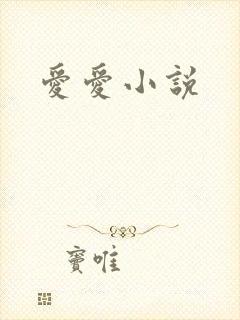 愛愛小說
竇唯